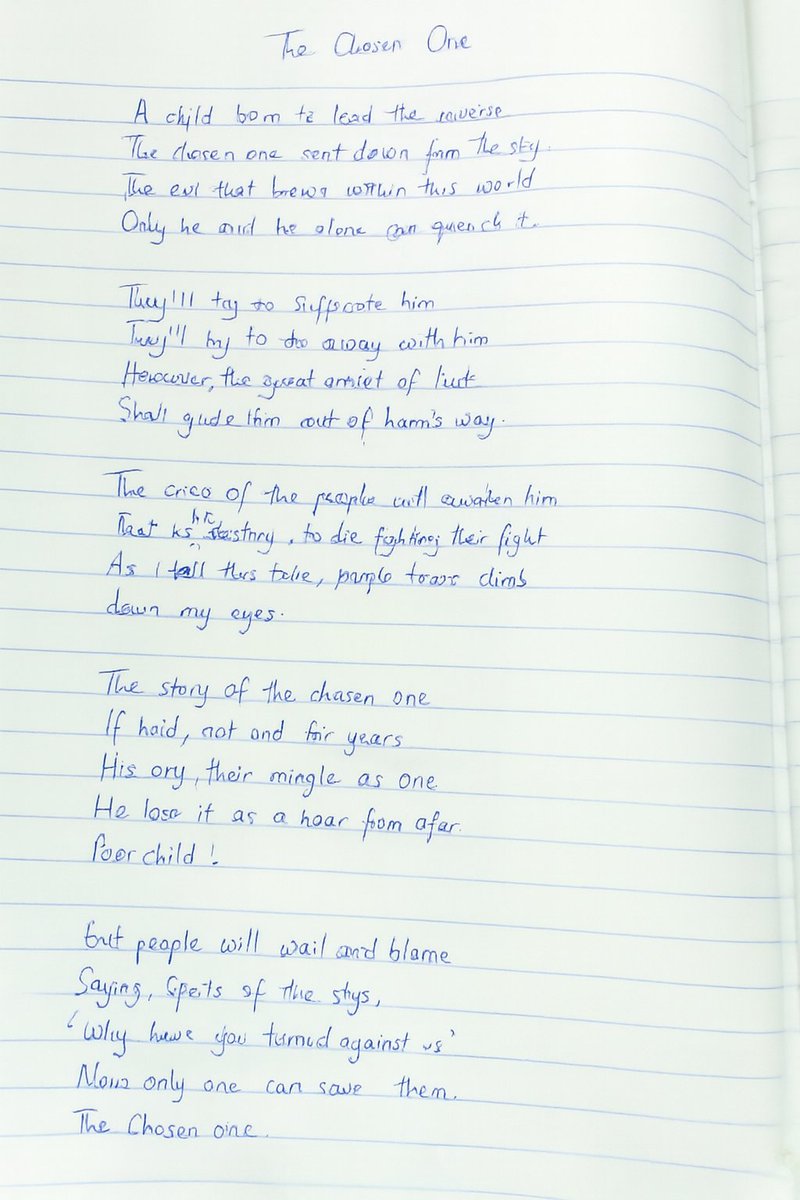 The Chosen One
A child born to lead the
The chosen one sent down form the sky.
The evil that brews within this world
Only he and he alone can quench it.
They'll try to suffocate him
They'll try to do away with him
However, the great of luck
Shall guide him out of harm's way.
The cries of the people will awaken him
That is his destiny, to die fighting their fight
As I tell this tale, purple tears climb
down my eyes.
The story of the chosen one
If haid, not and for years
His ory, their mingle as one
He lose it as a hoar from afar.
Poor child!
but people will wail and blame
Saying, Speits of the skys,
'Why have you turned against us'
Now only one can save them.
The Chosen one.